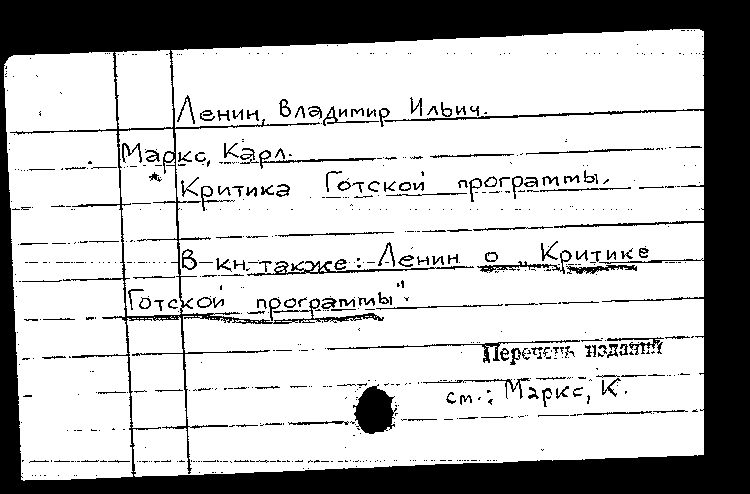 Ленин, Владимир Ильич.
Маркс, Карл.
* Критика Готской программы.
В кн. также: Ленин о „Критике
Готской программы".
Перечень изданий
см.: Маркс, К.